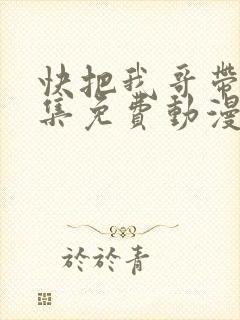 快把我哥帶
集免費動漫
於於青